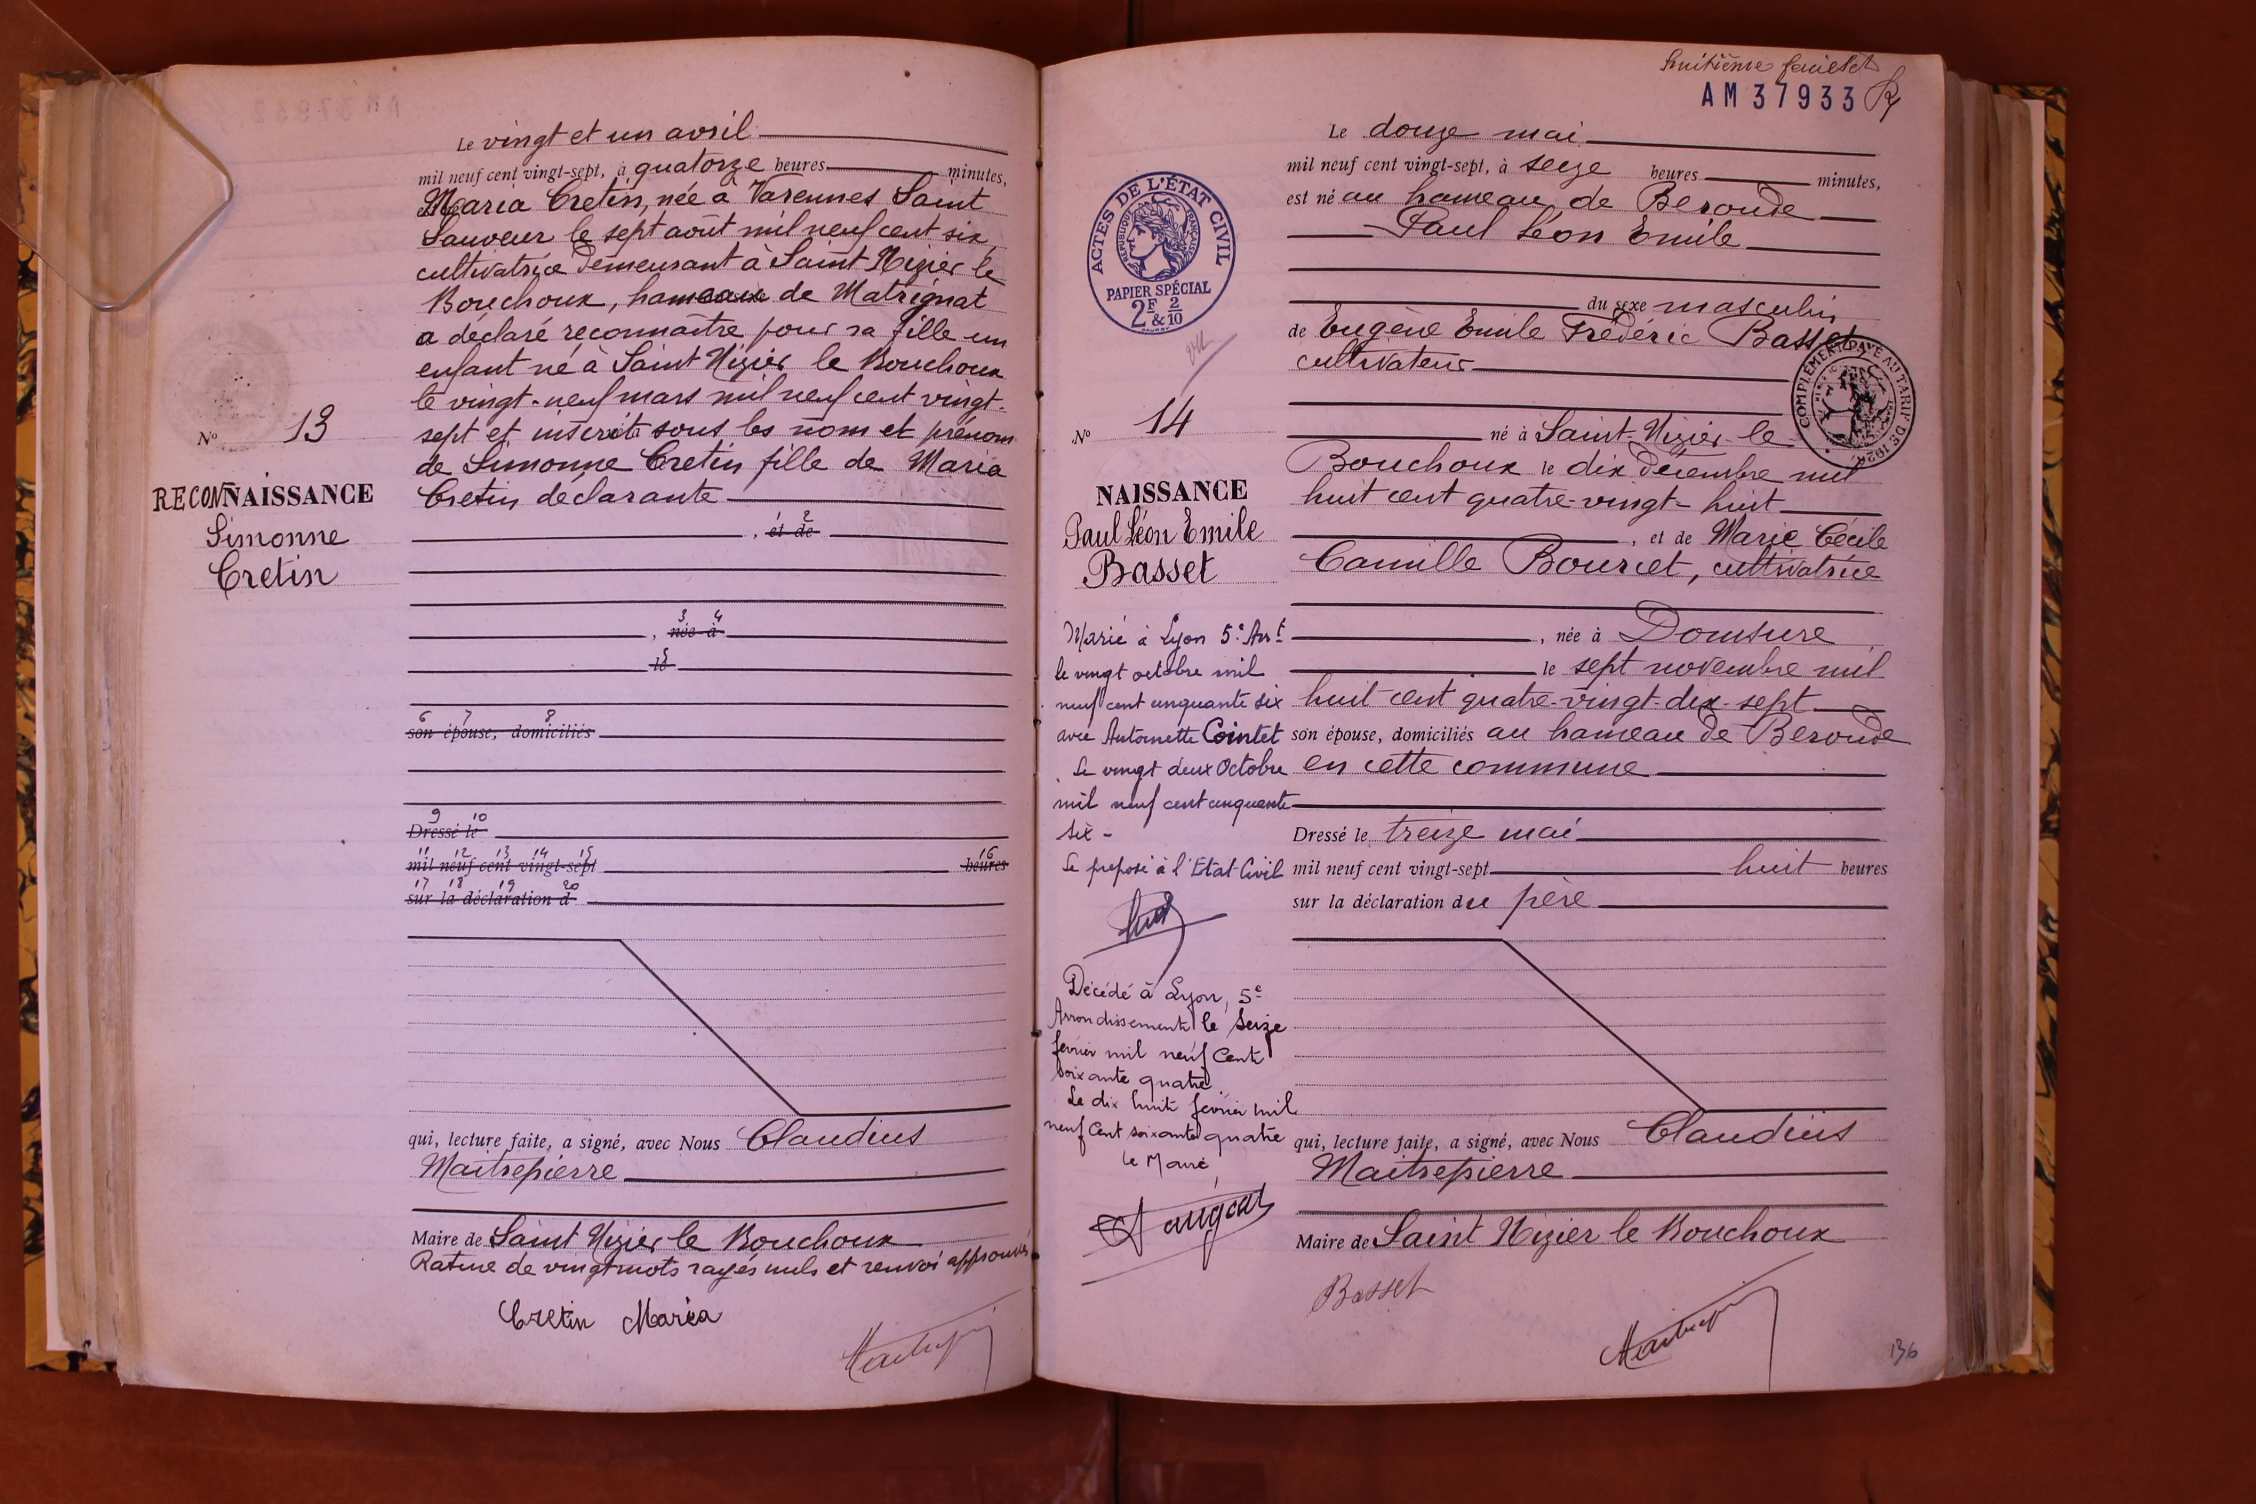 Le vingt et un avril
mil neuf cent vingt-sept, à quatorze heures minutes,
Maria Cretin, née à Varennes Saint
Sauveur le sept août mil neuf cent six,
cultivatrice demeurant à Saint Nizier le
Bouchoux, hameau de Matrignat
a déclaré reconnaître pour sa fille un
enfant né à Saint Nizier le Bouchoux
le vingt-neuf mars mil neuf cent vingt-
sept et inscrit sous les nom et prénom
de Simonne Cretin fille de Maria
Cretin déclarante
, et de
, née à
le
son épouse, domiciliés
Dressé le
mil neuf cent vingt-sept heures
sur la déclaration d
qui, lecture faite, a signé, avec Nous Claudius
Maitrepierre
Maire de Saint Nizier le Bouchoux
Rature de vingt mots rayés nuls et renvoi approuvés
Cretin Maria
N° 13
RECONNAISSANCE
Simonne
Cretin
huitième feuillet
AM 37933
ACTES DE L'ÉTAT CIVIL
RÉPUBLIQUE FRANÇAISE
PAPIER SPÉCIAL
2F & 2/10
N° 14
NAISSANCE
Paul Léon Emile
Basset
Marié à Lyon 5e Arrt
le vingt octobre mil
neuf cent cinquante six
avec Antoinette Cointet
Le vingt deux Octobre
mil neuf cent cinquante
six -
Le préposé à l'Etat-Civil
Décédé à Lyon, 5e
Arrondissement le Seize
février mil neuf Cent
soixante quatre.
Le dix huit février mil
neuf Cent soixante quatre
le Maire
Le douze mai
mil neuf cent vingt-sept, à seize heures minutes,
est né au hameau de Beroude
Paul Léon Emile
du sexe masculin
de Eugène Emile Frédéric Basset,
cultivateur
COMPLÉMENT PAYÉ AU TARIF DE 1926
né à Saint-Nizier-le-
Bouchoux le dix décembre mil
huit cent quatre-vingt-huit
, et de Marie Cécile
Camille Bourcet, cultivatrice
, née à Domsure
le sept novembre mil
huit cent quatre-vingt-dix-sept
son épouse, domiciliés au hameau de Beroude
en cette commune
Dressé le treize mai
mil neuf cent vingt-sept huit heures
sur la déclaration du père
qui, lecture faite, a signé, avec Nous Claudius
Maitrepierre
Maire de Saint Nizier le Bouchoux
Basset
136